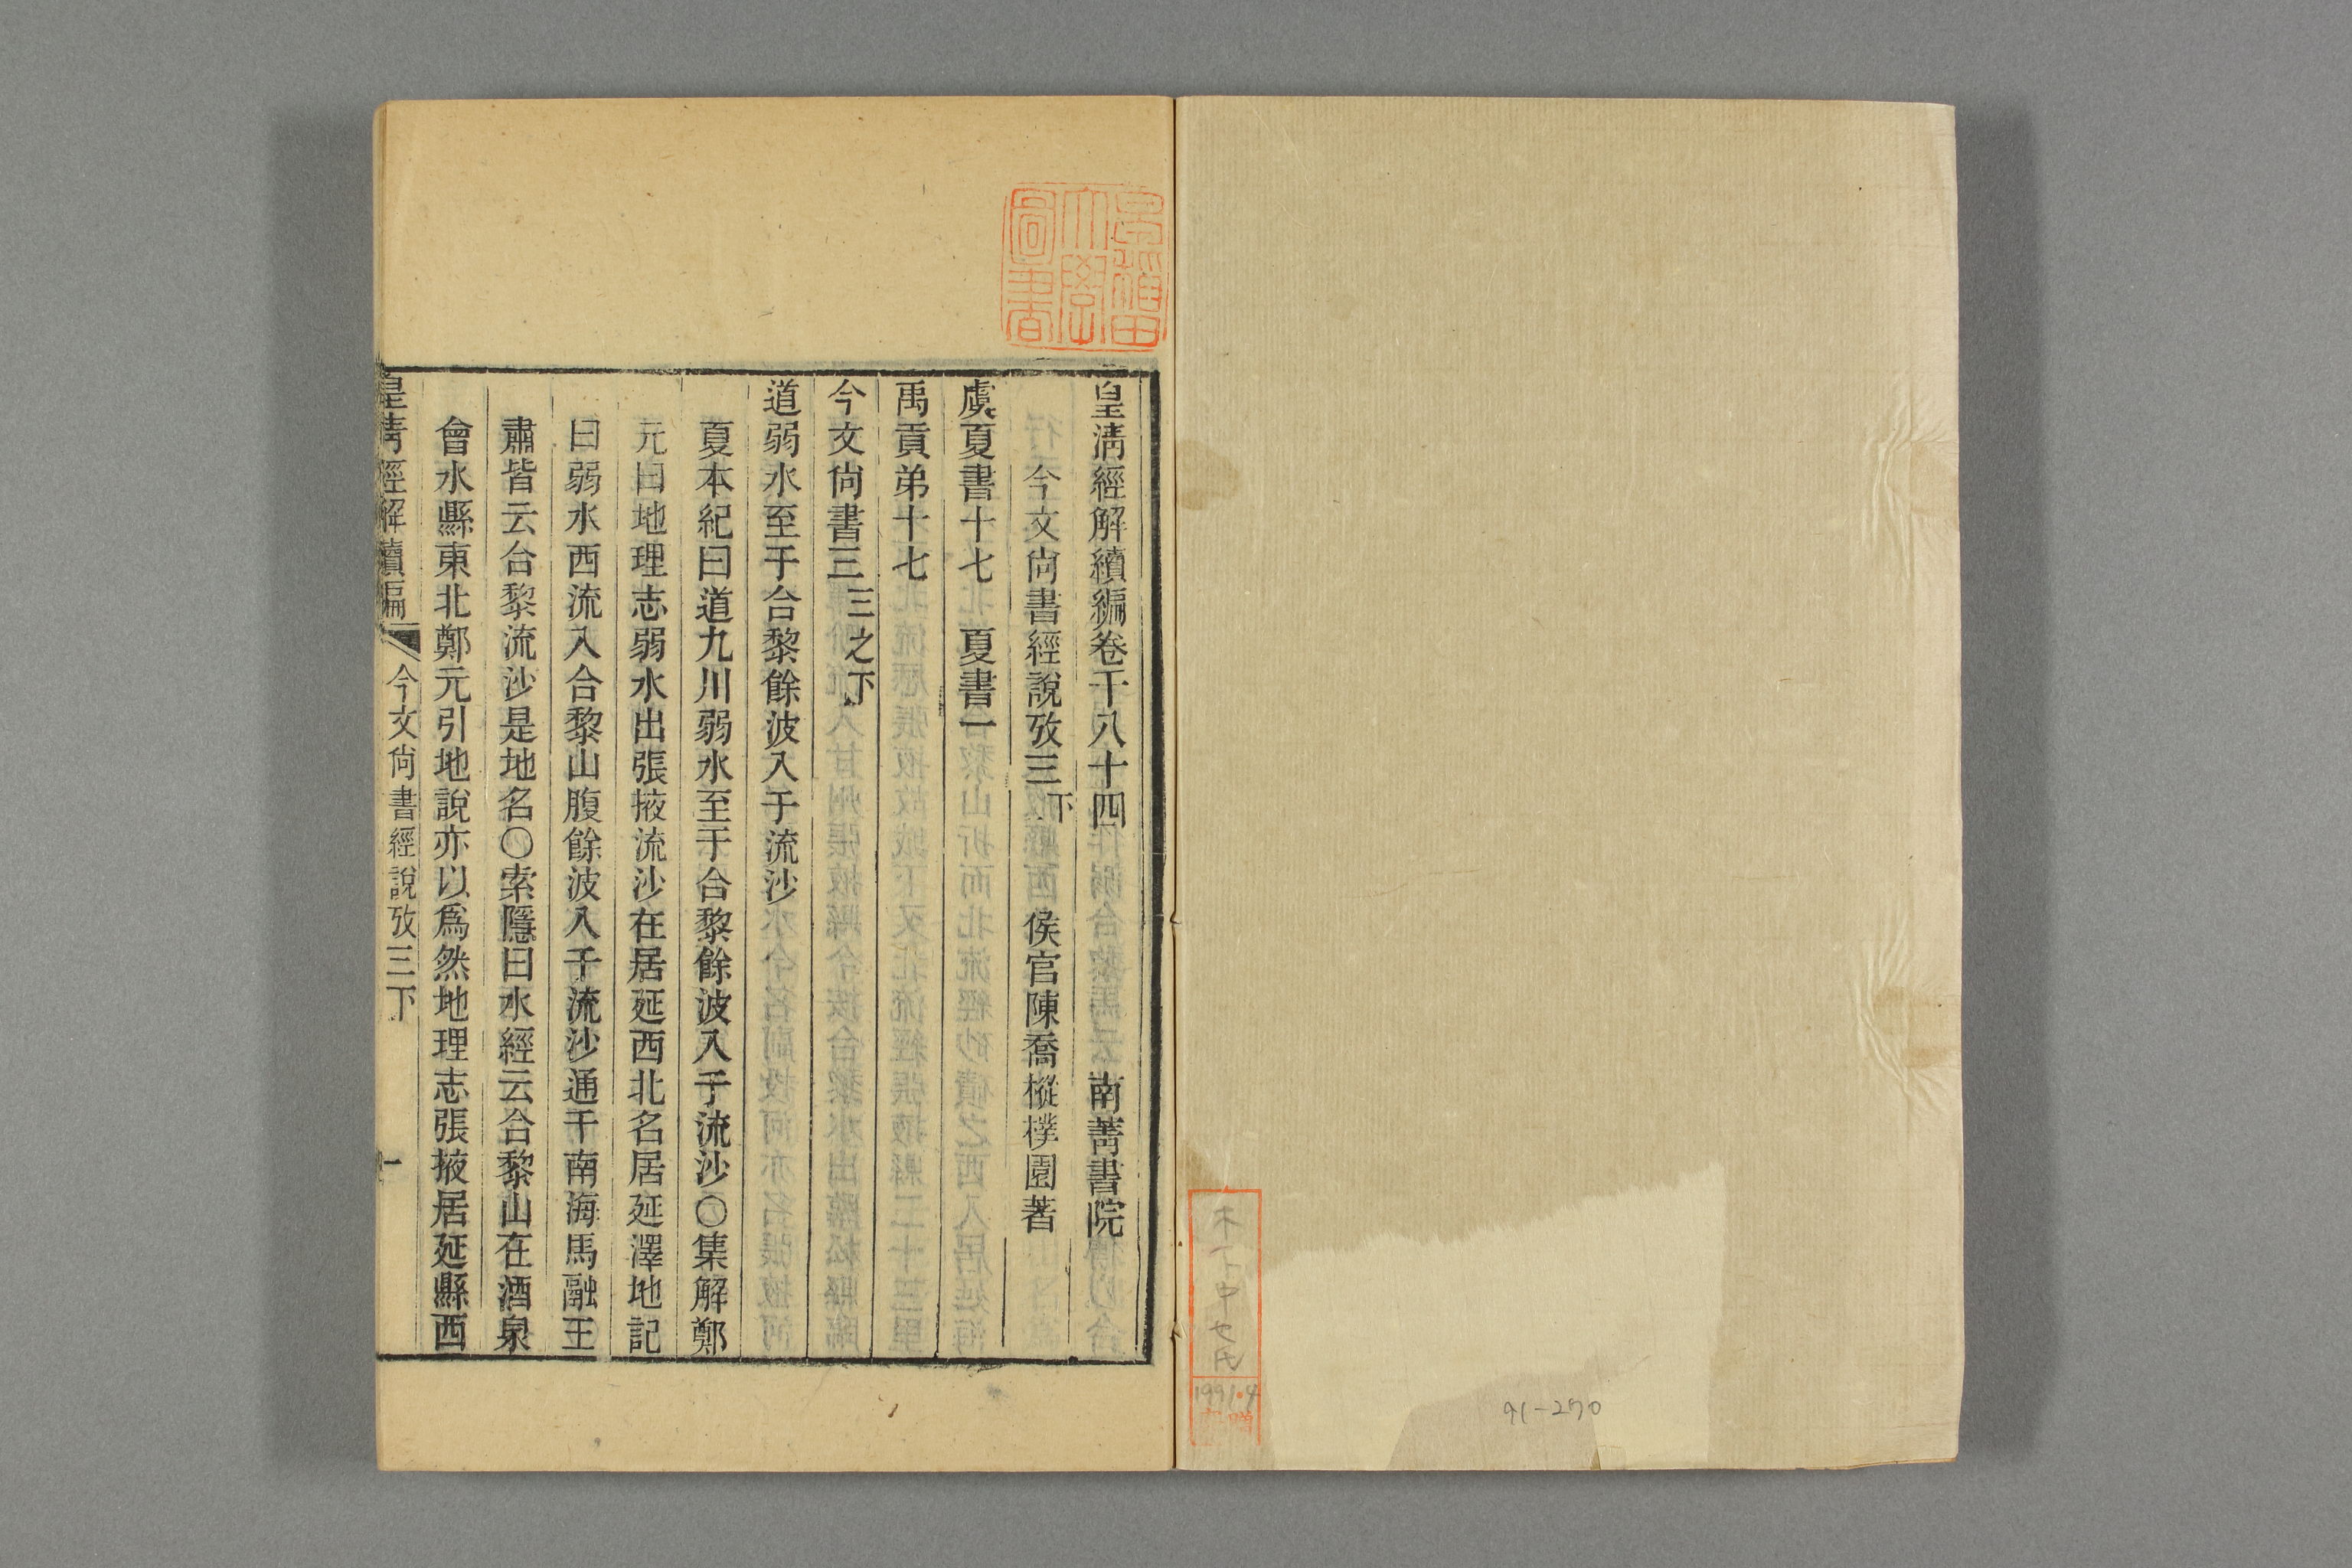 皇淸經解續編卷千八十四　南菁書院
今文尙書經說攷三下　侯官陳喬樅樸園著
虞夏書十七　夏書一
禹貢弟十七
今文尙書三　三之下
道弱水至于合黎餘波入于流沙
夏本紀曰道九川弱水至于合黎餘波入于流沙○集解鄭
元曰地理志弱水出張掖流沙在居延西北名居延澤地記
曰弱水西流入合黎山腹餘波入于流沙通于南海馬融王
肅皆云合黎流沙是地名○索隱曰水經云合黎山在酒泉
會水縣東北鄭元引地說亦以爲然地理志張掖居延縣西
皇淸經解續編　今文尙書經說攷三下　一
早稲田
大學
圖書
1991.4
91-270